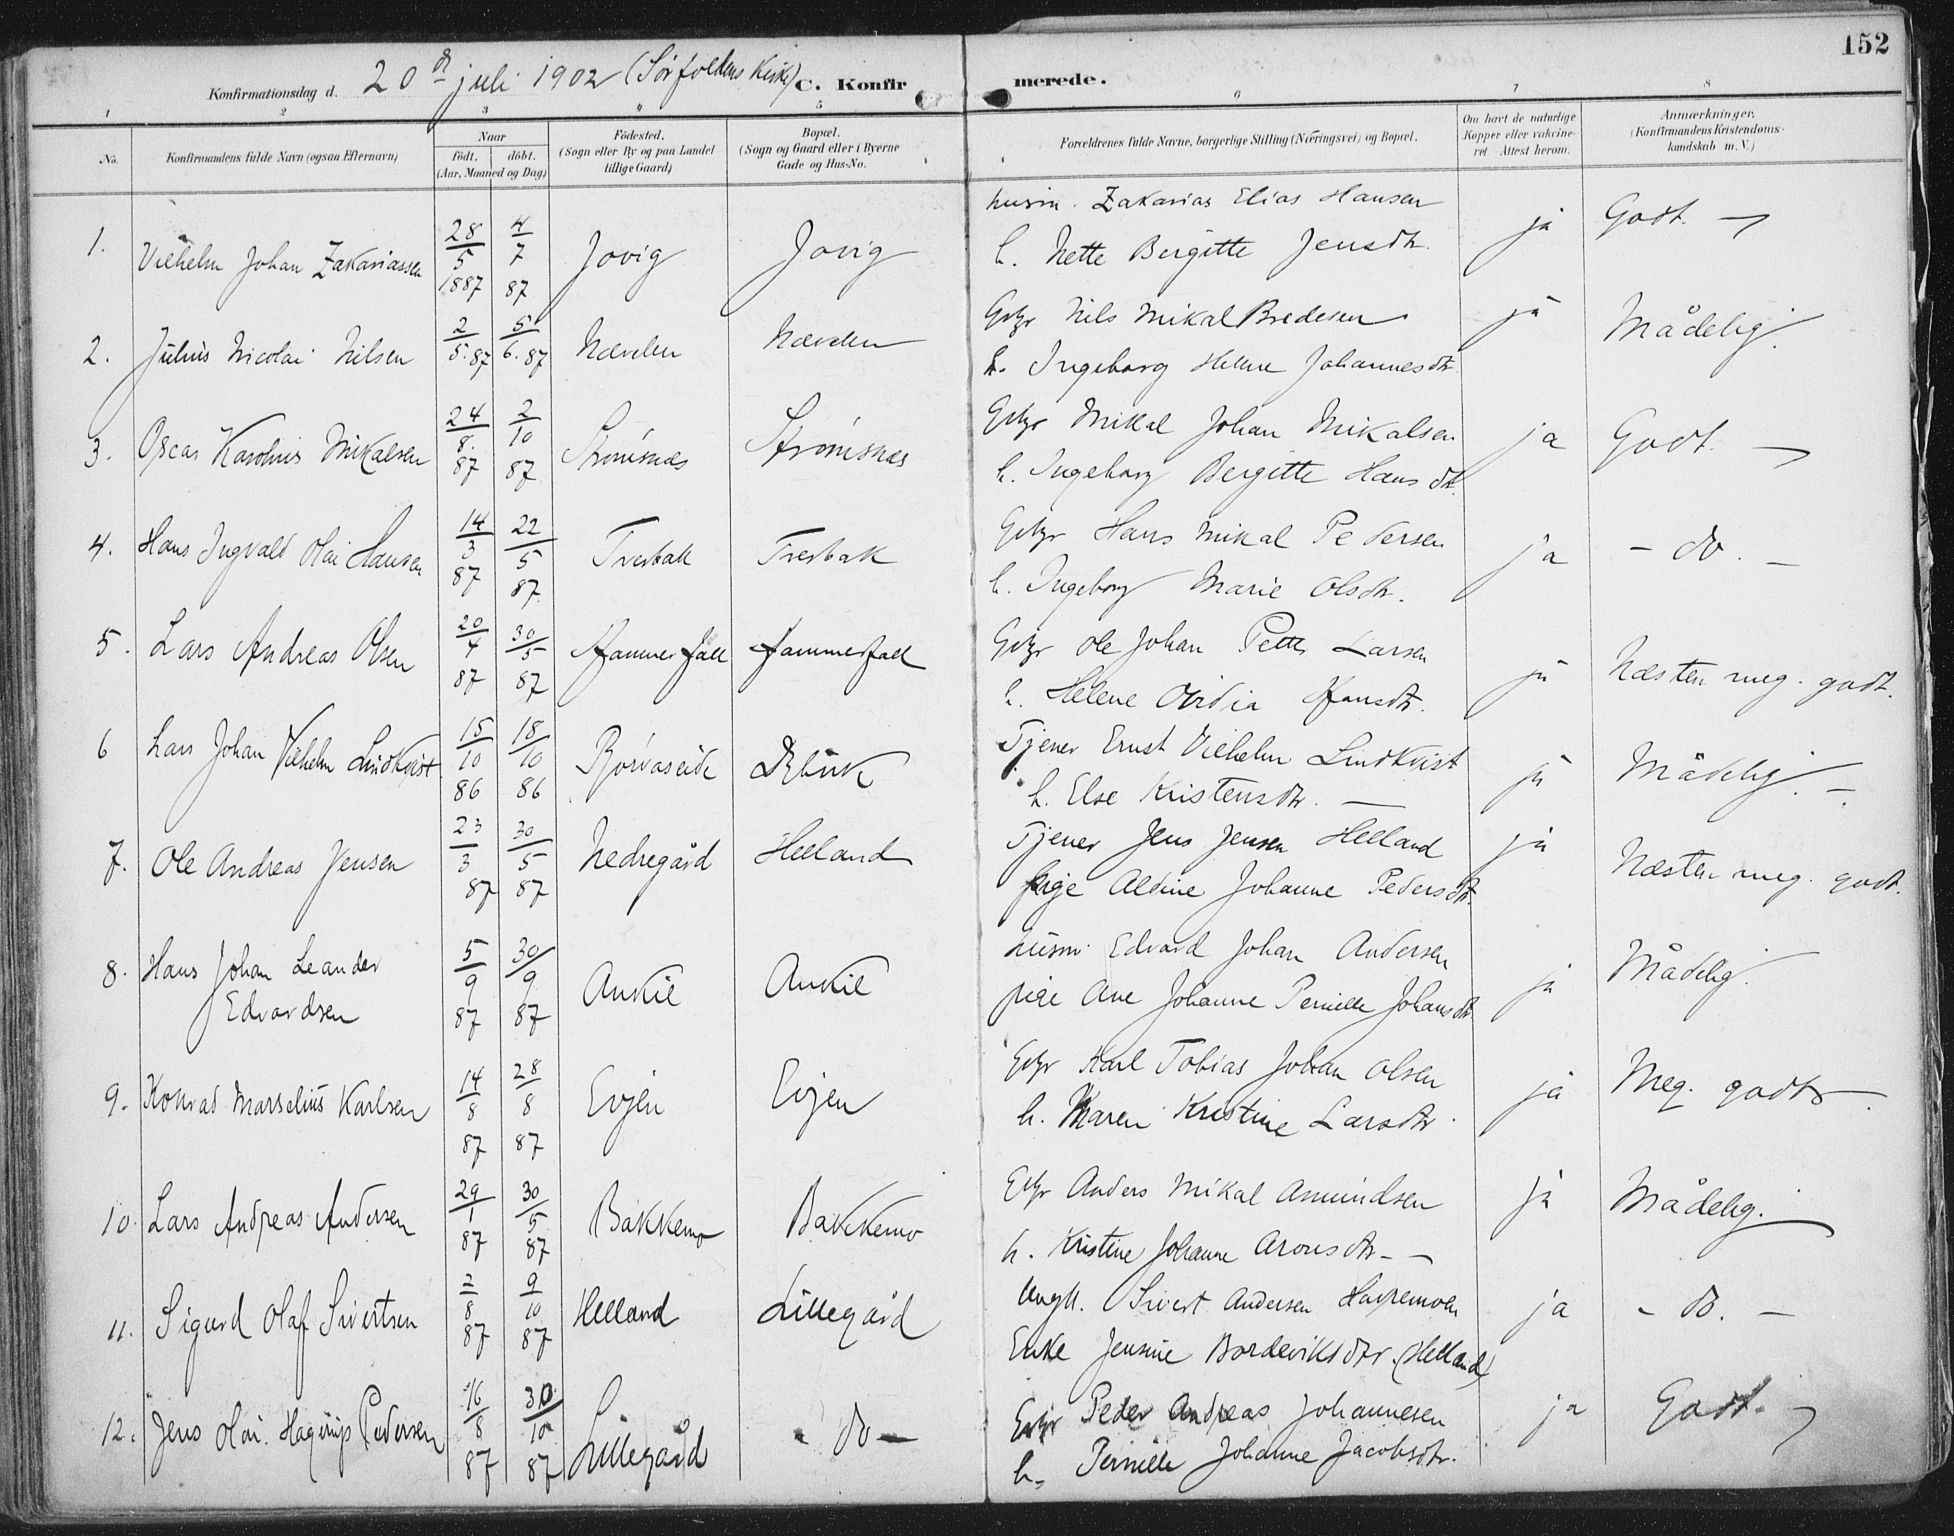 152
Konfirmationsdag d. 20de juli 1902 (Sørfoldens Kirke) C. Konfirmerede.
1 2 3 " 5 6 7 8
No. Konfirmandens fulde Navn (ogsaa Efternavn) Naar födt. döbt. (Aar, Maaned og Dag) Födested. (Sogn eller By og paa Landet tillige Gaard) Bopæl. (Sogn og Gaard eller i Byerne Gade og Hus-No. Forældrenes fulde Navne, borgerlige Stilling (Næringsvei) og Bopæl. Om havt de naturlige Kopper eller vakcineret. Attest herom. Anmærkninger. (Konfirmandens Kristendomskundskab m. V.)
1. Vilhelm Johan Zakariassen 28/5 1887 4/7 87 Jovig Jovig husm. Zakarias Elias Hansen ja Godt. —
h. Nette Bergitte Jensdtr.
2. Julius Nicolai Nilsen 2/5. 87 5/6. 87 Nævelen Nævelen Gbr Nils Mikal Bredesen ja Mådelig.
h. Ingeborg Helene Johannesdtr.
3. Oscar Karolius Mikalsen 24/8. 87 2/10 87 Strømsnæs Strømsnæs Gbr Mikal Johan Mikalsen ja Godt. —
h. Ingeborg Bergitte Hansdtr.
4. Hans Ingvald Olai Hansen 14/3 87 22/5 87. Tverbak Tverbak Gbr Hans Mikal Pedersen ja - do. -
h. Ingeborg Marie Olsdtr.
5. Lars Andreas Olsen 20/4 87 30/5 87 Hammerfall Hammerfall Gbr Ole Johan Petter Larsen ja Næsten meg. godt.
h. Helene Ovidia Hansdtr.
6 Lars Johan Vilhelm Lindkvist 15/10 86 18/10 86 Rørvaseide Tjener Ernst Vilhelm Lindkvist ja Mådelig. —
h. Else Kristensdtr. —
7. Ole Andreas Jensen 23/3 87 30/5 87 Nedregård Helland Tjener Jens Jensen Helland ja Næsten meg. godt.
pige Aldine Johanne Pedersdtr.
8. Hans Johan Leander Edvardsen 5/9 87 30/9 87 Ankil Ankil husm. Edvard Johan Andersen ja Mådelig.
pige Ane Johanne Pernille Johansdtr.
9. Konrad Marselius Karlsen 14/8 87 28/8 87 Evjen Evjen Gbr Karl Tobias Johan Olsen ja Meg. godt —.
h. Maren Kristine Larsdtr.
10. Lars Andreas Andersen 29/1 87 30/5 87 Bakkemo Bakkemo Gbr Anders Mikal Amundsen ja Mådelig.
h. Kristine Johanne Aronsdtr - —
11. Sigurd Olaf Sivertsen 2/8 87 9/10 87 Helland Lillegård Ungk. Sivert Andersen ja - do. -
Enke Jensine Bordeviksdtr. (Helland)
12. Jens Olai Hagerup Pedersen 16/8 87 30/10 87 Lillegård - do — Gbr Peder Andreas Johannesen ja Godt. —
h. Pernille Johanne Jacobsdtr.